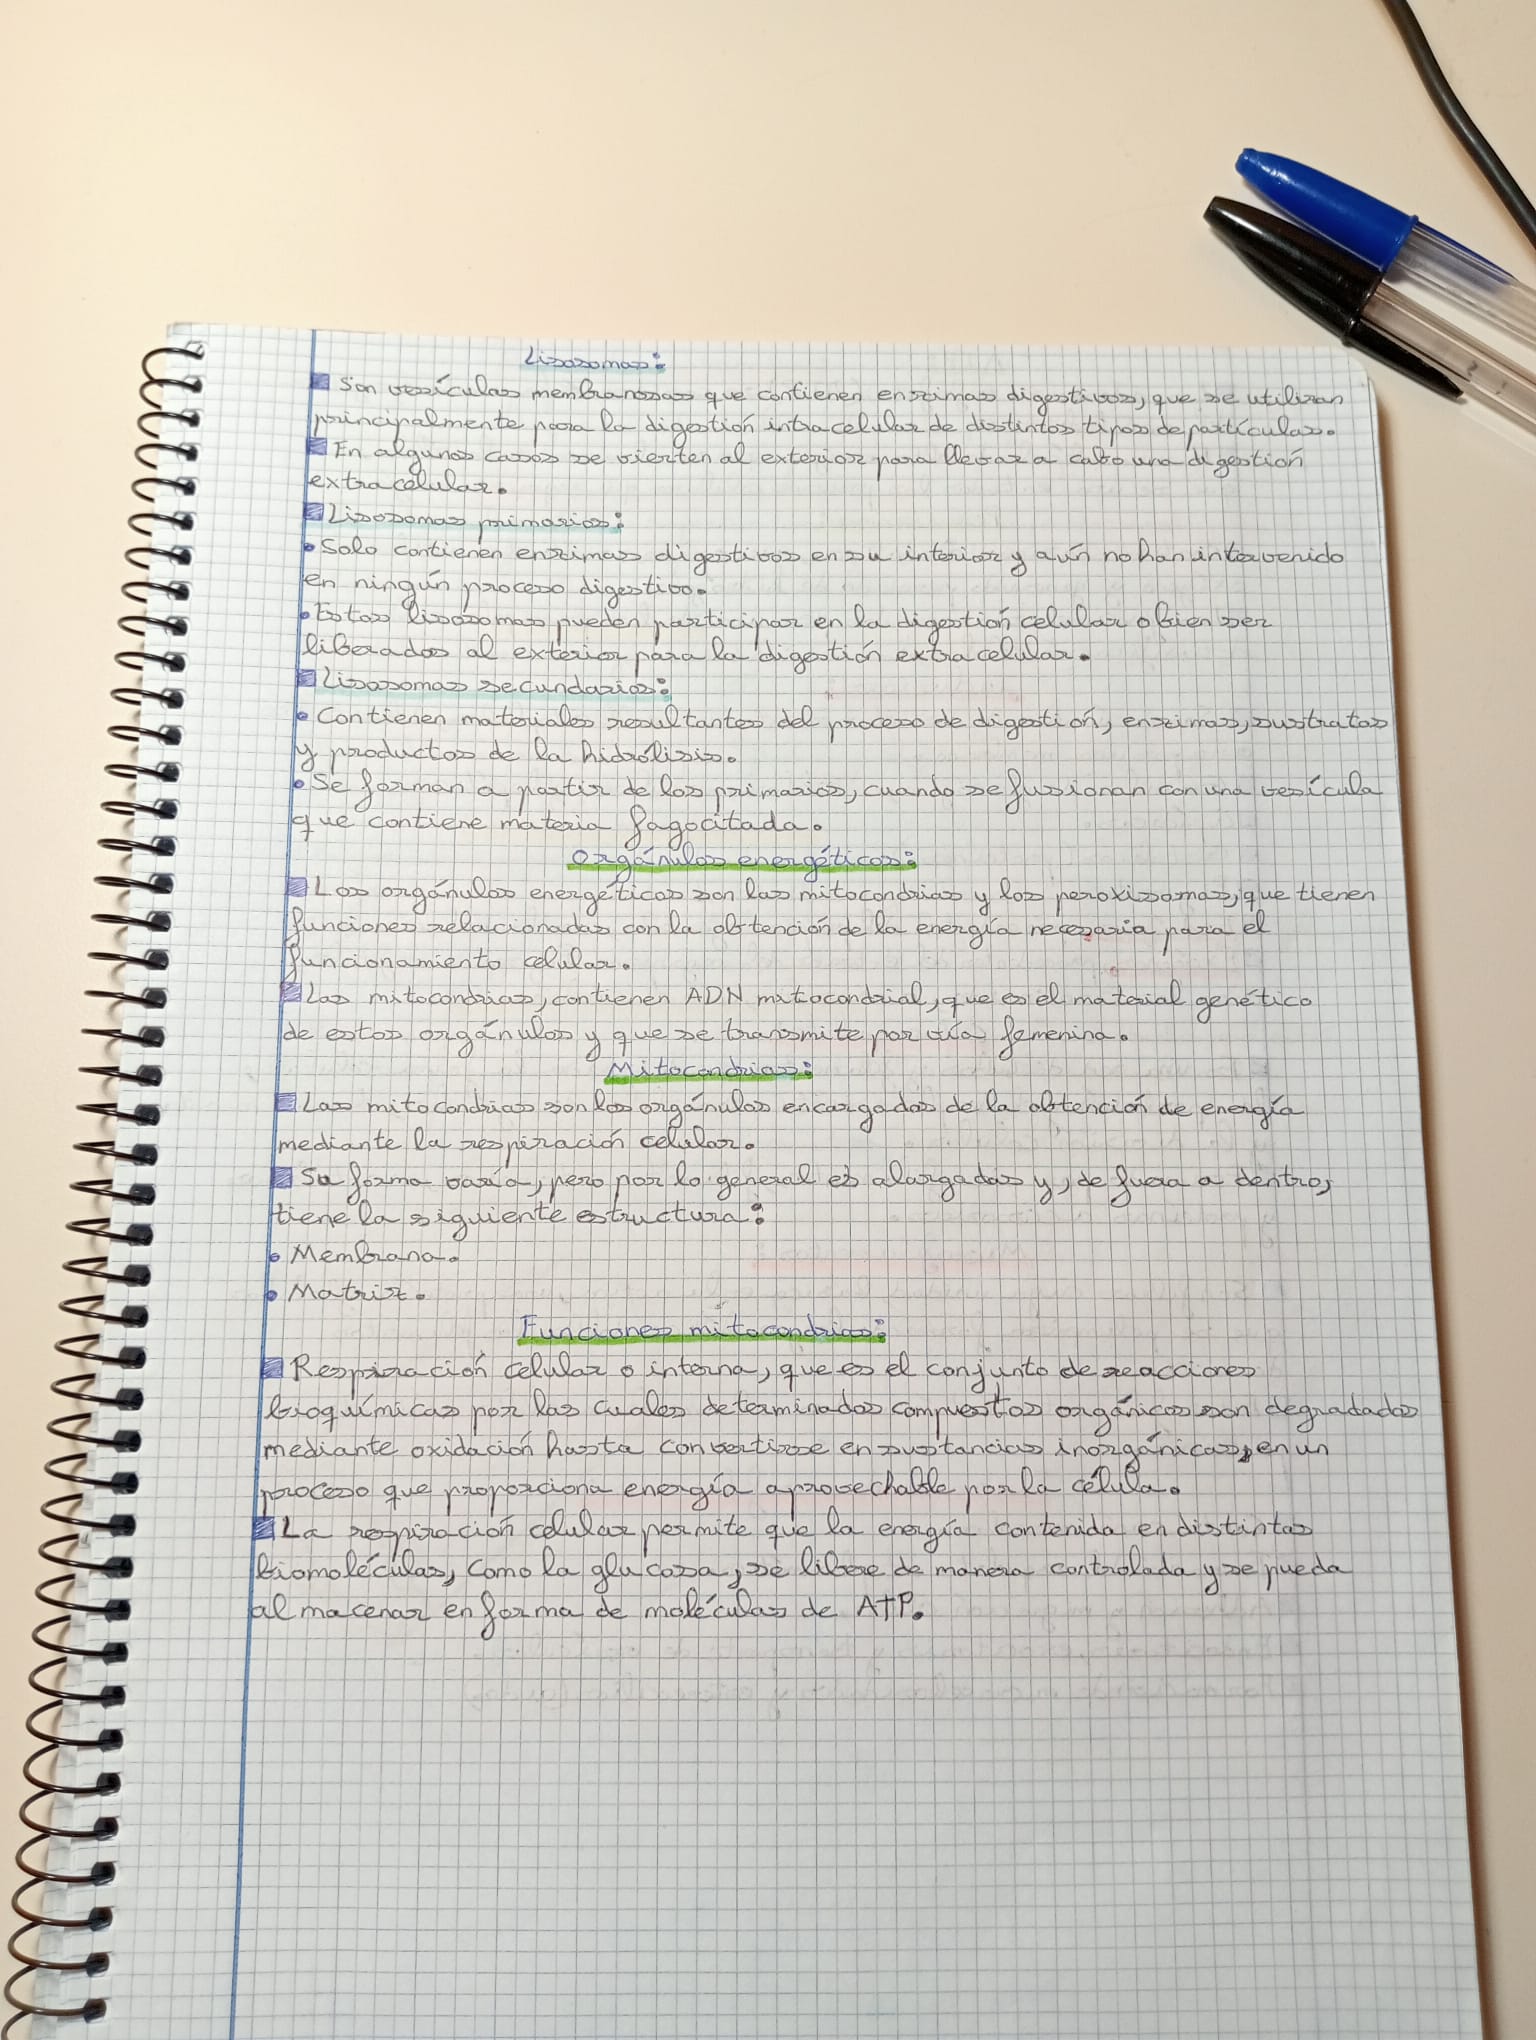 Lisosomas:
Son vesículas membranosas que contienen enzimas digestivos, que se utilizan
principalmente para la digestión intracelular de distintos tipos de partículas.
En algunos casos se vierten al exterior para llevar a cabo una digestión
extracelular.
Lisosomas primarios:
• Solo contienen enzimas digestivos en su interior y aún no han intervenido
en ningún proceso digestivo.
• Estos lisosomas pueden participar en la digestión celular o bien ser
liberados al exterior para la digestión extracelular.
Lisosomas secundarios:
• Contienen materiales resultantes del proceso de digestión, enzimas, sustratos
y productos de la hidrólisis.
• Se forman a partir de los primarios, cuando se fusionan con una vesícula
que contiene materia fagocitada.
Orgánulos energéticos:
Los orgánulos energéticos son las mitocondrias y los peroxisomas, que tienen
funciones relacionadas con la obtención de la energía necesaria para el
funcionamiento celular.
Las mitocondrias, contienen ADN mitocondrial, que es el material genético
de estos orgánulos y que se transmite por vía femenina.
Mitocondrias:
Las mitocondrias son los orgánulos encargados de la obtención de energía
mediante la respiración celular.
Su forma varía, pero por lo general es alargadas y, de fuera a dentro,
tiene la siguiente estructura:
• Membrana.
• Matriz.
Funciones mitocondrias:
Respiración celular o interna, que es el conjunto de reacciones
bioquímicas por las cuales determinados compuestos orgánicos son degradados
mediante oxidación hasta convertirse en sustancias inorgánicas, en un
proceso que proporciona energía aprovechable por la célula.
La respiración celular permite que la energía contenida en distintas
biomoléculas, como la glucosa, se libere de manera controlada y se pueda
almacenar en forma de moléculas de ATP.